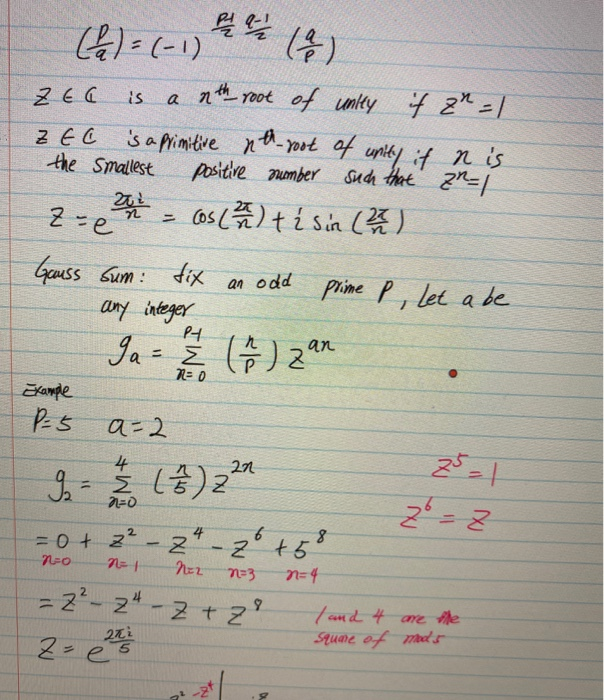 (p/q) = (-1)^(p-1)/2 (q-1)/2 (q/p)
Z ∈ C is a nth root of unity if z^n = 1
Z ∈ C is a primitive nth-root of unity if n is
the smallest positive number such that z^n = 1
Z = e^(2πi/n) = cos(2π/n) + i sin(2π/n)
Gauss sum: fix an odd prime P, Let a be
any integer
g_a = Σ_{n=0}^{p-1} (n/p) z^{an}
Example
P=5 a=2
g_2 = Σ_{n=0}^{4} (n/5) z^{2n}
z^5 = 1
z^6 = z
= 0 + z^2 - z^4 - z^6 + 5^8
n=0 n=1 n=2 n=3 n=4
= z^2 - z^4 - z + z^8
1 and 4 are the
square of mod 5
Z = e^(2πi/5)